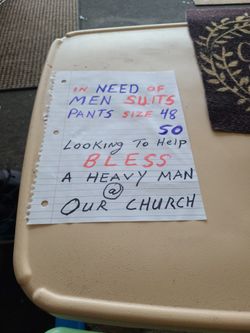 IN NEED OF
MEN SUITS
PANTS SIZE 48
50
LOOKING TO HELP
BLESS
A HEAVY MAN
@
OUR CHURCH